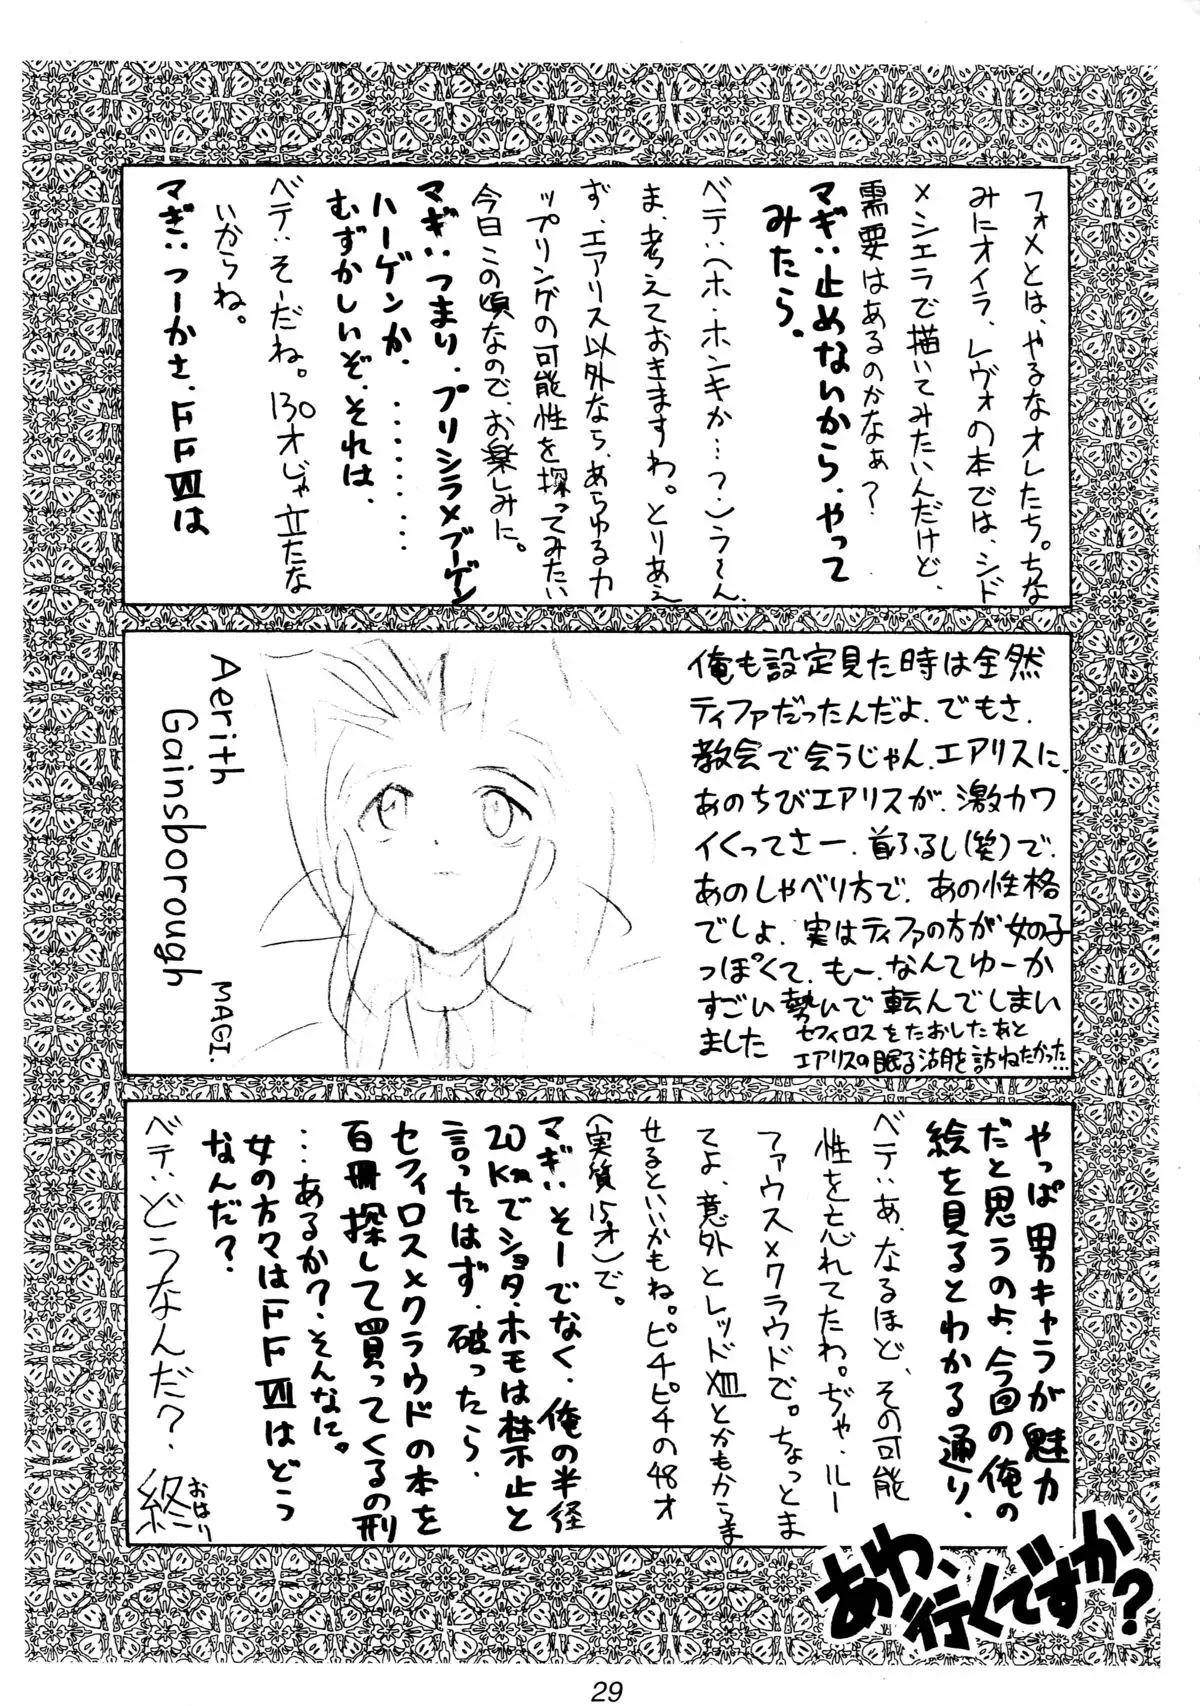 フォメとは、やるなオレたち。ちな
みにオイラ、レヴォの本では、シド
×シエラで描いてみたいんだけど、
需要はあるのかなぁ？
マギ:止めないから、やって
みたら。
ベテ:ヘホ・ホンキか…？)う〜ん、
ま、考えておきますわ。とりあえ
ず、エアリス以外なら、あらゆるカ
ップリングの可能性を探ってみたい
今日この頃なので、お楽しみに。
マギ:つまり、プリシラ×ブーゲン
ハーゲンか、・・・・・・・
むずかしいぞ、それは、
ベテ:そーだね。130才じゃ立たな
いからね。
マギ:つーかさ、FFⅦは
俺も設定見た時は全然
ティファだったんだよ、でもさ、
教会で会うじゃん、エアリスに、
あのちびエアリスが、激カワ
イくってさー、首ふるし(笑)で、
あのしゃべり方で、あの性格
でしょ、実はティファの方が女の子
っぽくて、もー、なんてゆーか
すごい勢いで転んでしまい
ました
セフィロスをたおしたあと
エアリスの眠る湖を訪ねたかった…
Aerith
Gainsborough
MAGI.
やっぱ男キャラが魅力
だと思うのよ、今回の俺の
絵を見るとわかる通り、
ベテ:あ、なるほど、その可能
性を忘れてたわ。ぢゃ・ルー
ファウス×クラウドで。ちょっとま
てよ、意外とレッドⅩⅢとかもからま
せるといいかもね。ピチピチの48才
(実質15才)で。
マギ:そーでなく、俺の半径
20Kmでショタ・ホモは禁止と
言ったはず、破ったら、
セフィロス×クラウドの本を
百冊探して買ってくるの刑
…あるか？、そんなに。
女の方々はFFⅦはどう
なんだ？
ベテ:どうなんだ？、
終
おはり
あわ、行くですか？
29